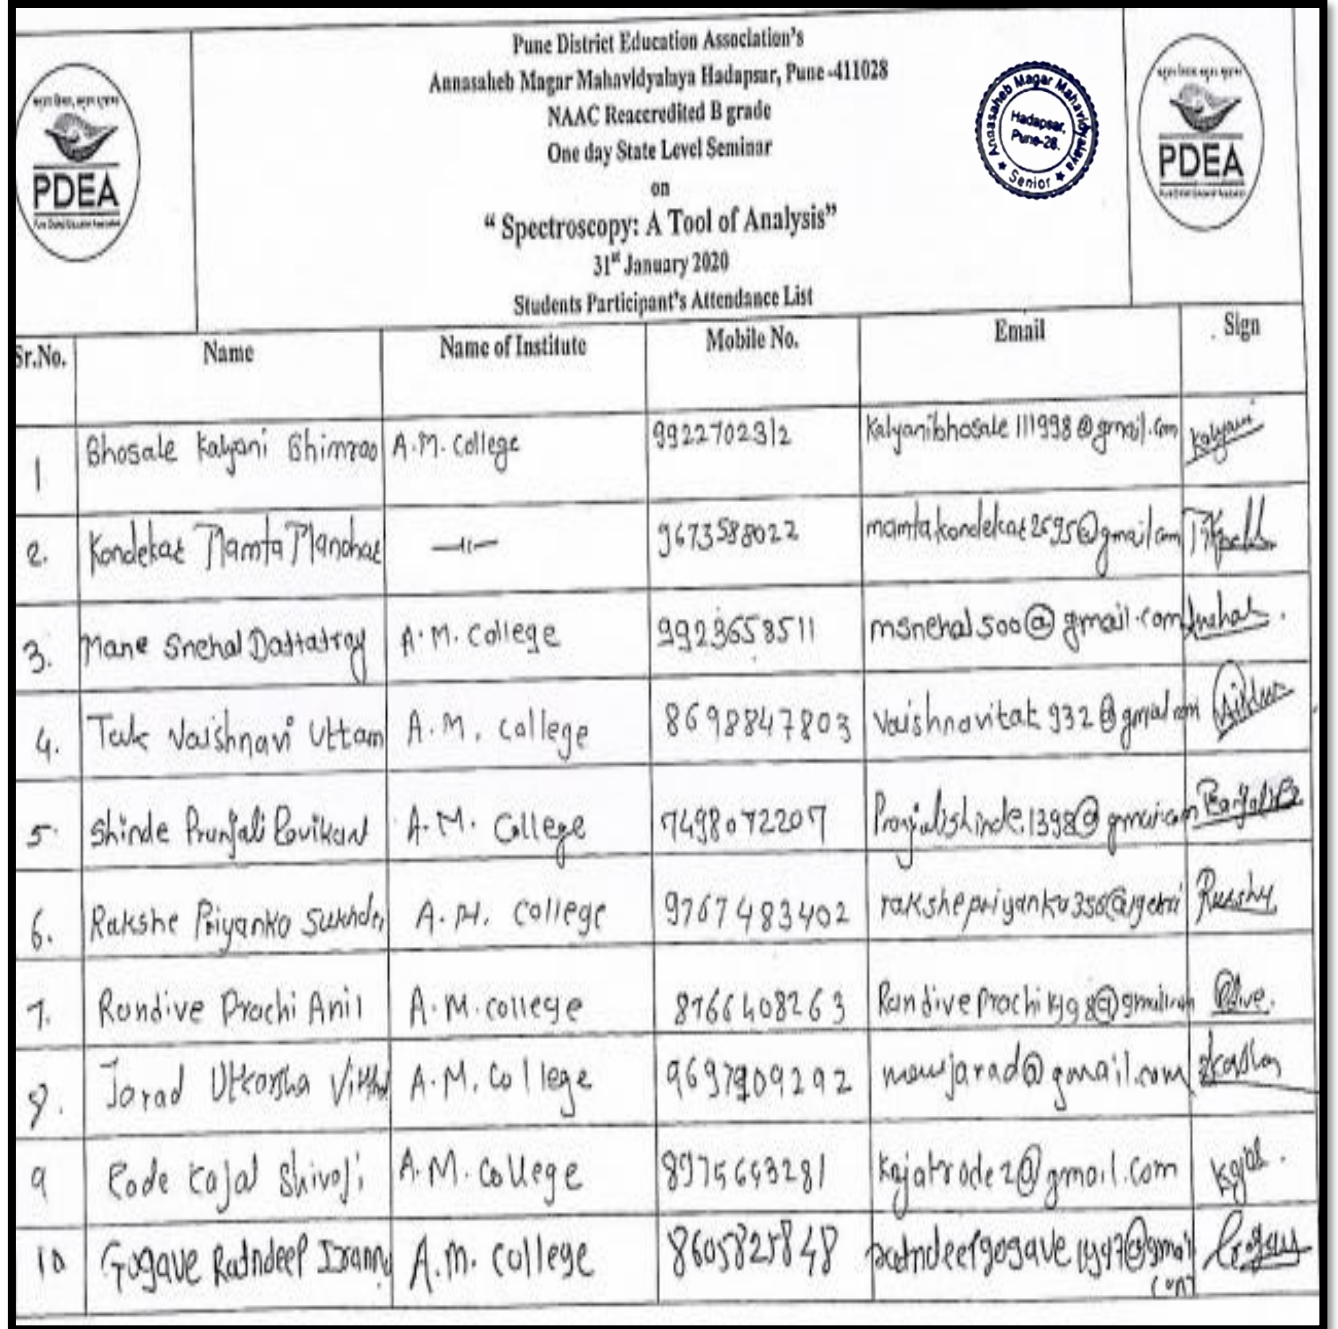 Pune District Education Association's
Annasaheb Magar Mahavidyalaya Hadapsar, Pune -411028
NAAC Reaccredited B grade
One day State Level Seminar
on
“ Spectroscopy: A Tool of Analysis”
31st January 2020
Students Participant's Attendance List
PDEA
Annasaheb Magar Mahavidyalaya
Hadapsar,
Pune-28.
★ Senior ★
PDEA
Sr.No. Name Name of Institute Mobile No. Email Sign
1 Bhosale Kalyani Bhimrao A.M. College 9922702312 Kalyanibhosale111998@gmail.com Kalyani
2. Kondekar Mamta Manohar —〃— 9673588022 mamtakondekar2595@gmail.com
3. Mane Snehal Dattatray A.M. College 9923658511 msnehal500@gmail.com Snehal
4. Tak Vaishnavi Uttam A.M. College 8698847803 vaishnavitak932@gmail.com
5. Shinde Pranjali Ravikant A.M. College 7498072207 Pranjalishinde1398@gmail.com
6. Rakshe Priyanka Sukhdev A.M. College 9767483402
7. Randive Prachi Anil A.M. college 8766408263
8. Jarad Utkarsha Vitthal A.M. College mewjarad@gmail.com
9 Rode Kajal Shivaji A.M. College 8975643281 Kajalrode2@gmail.com Kajal.
10 Gogave Ratndeep Iranna A.M. College 8605825848 ratndeepgogave1997@gmail.com